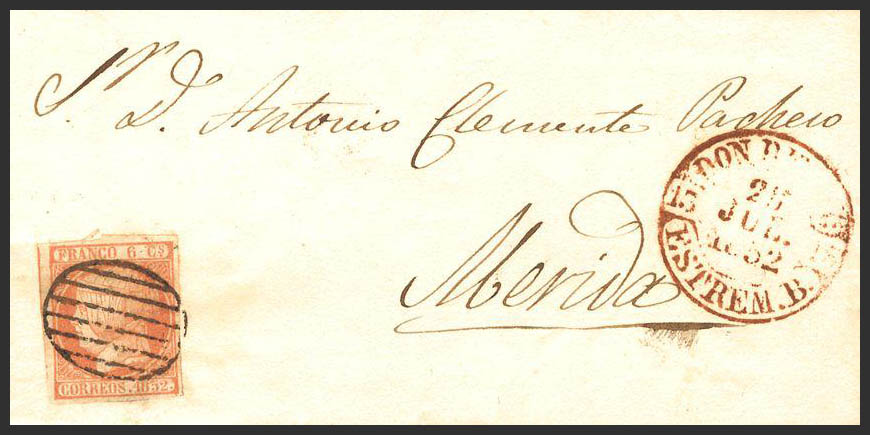 Sr. D. Antonio Clemente Pacheco
Merida
FRANCO 6 Cs
CORREOS. 1852.
DON B
JUL.
1852
ESTREM. B.